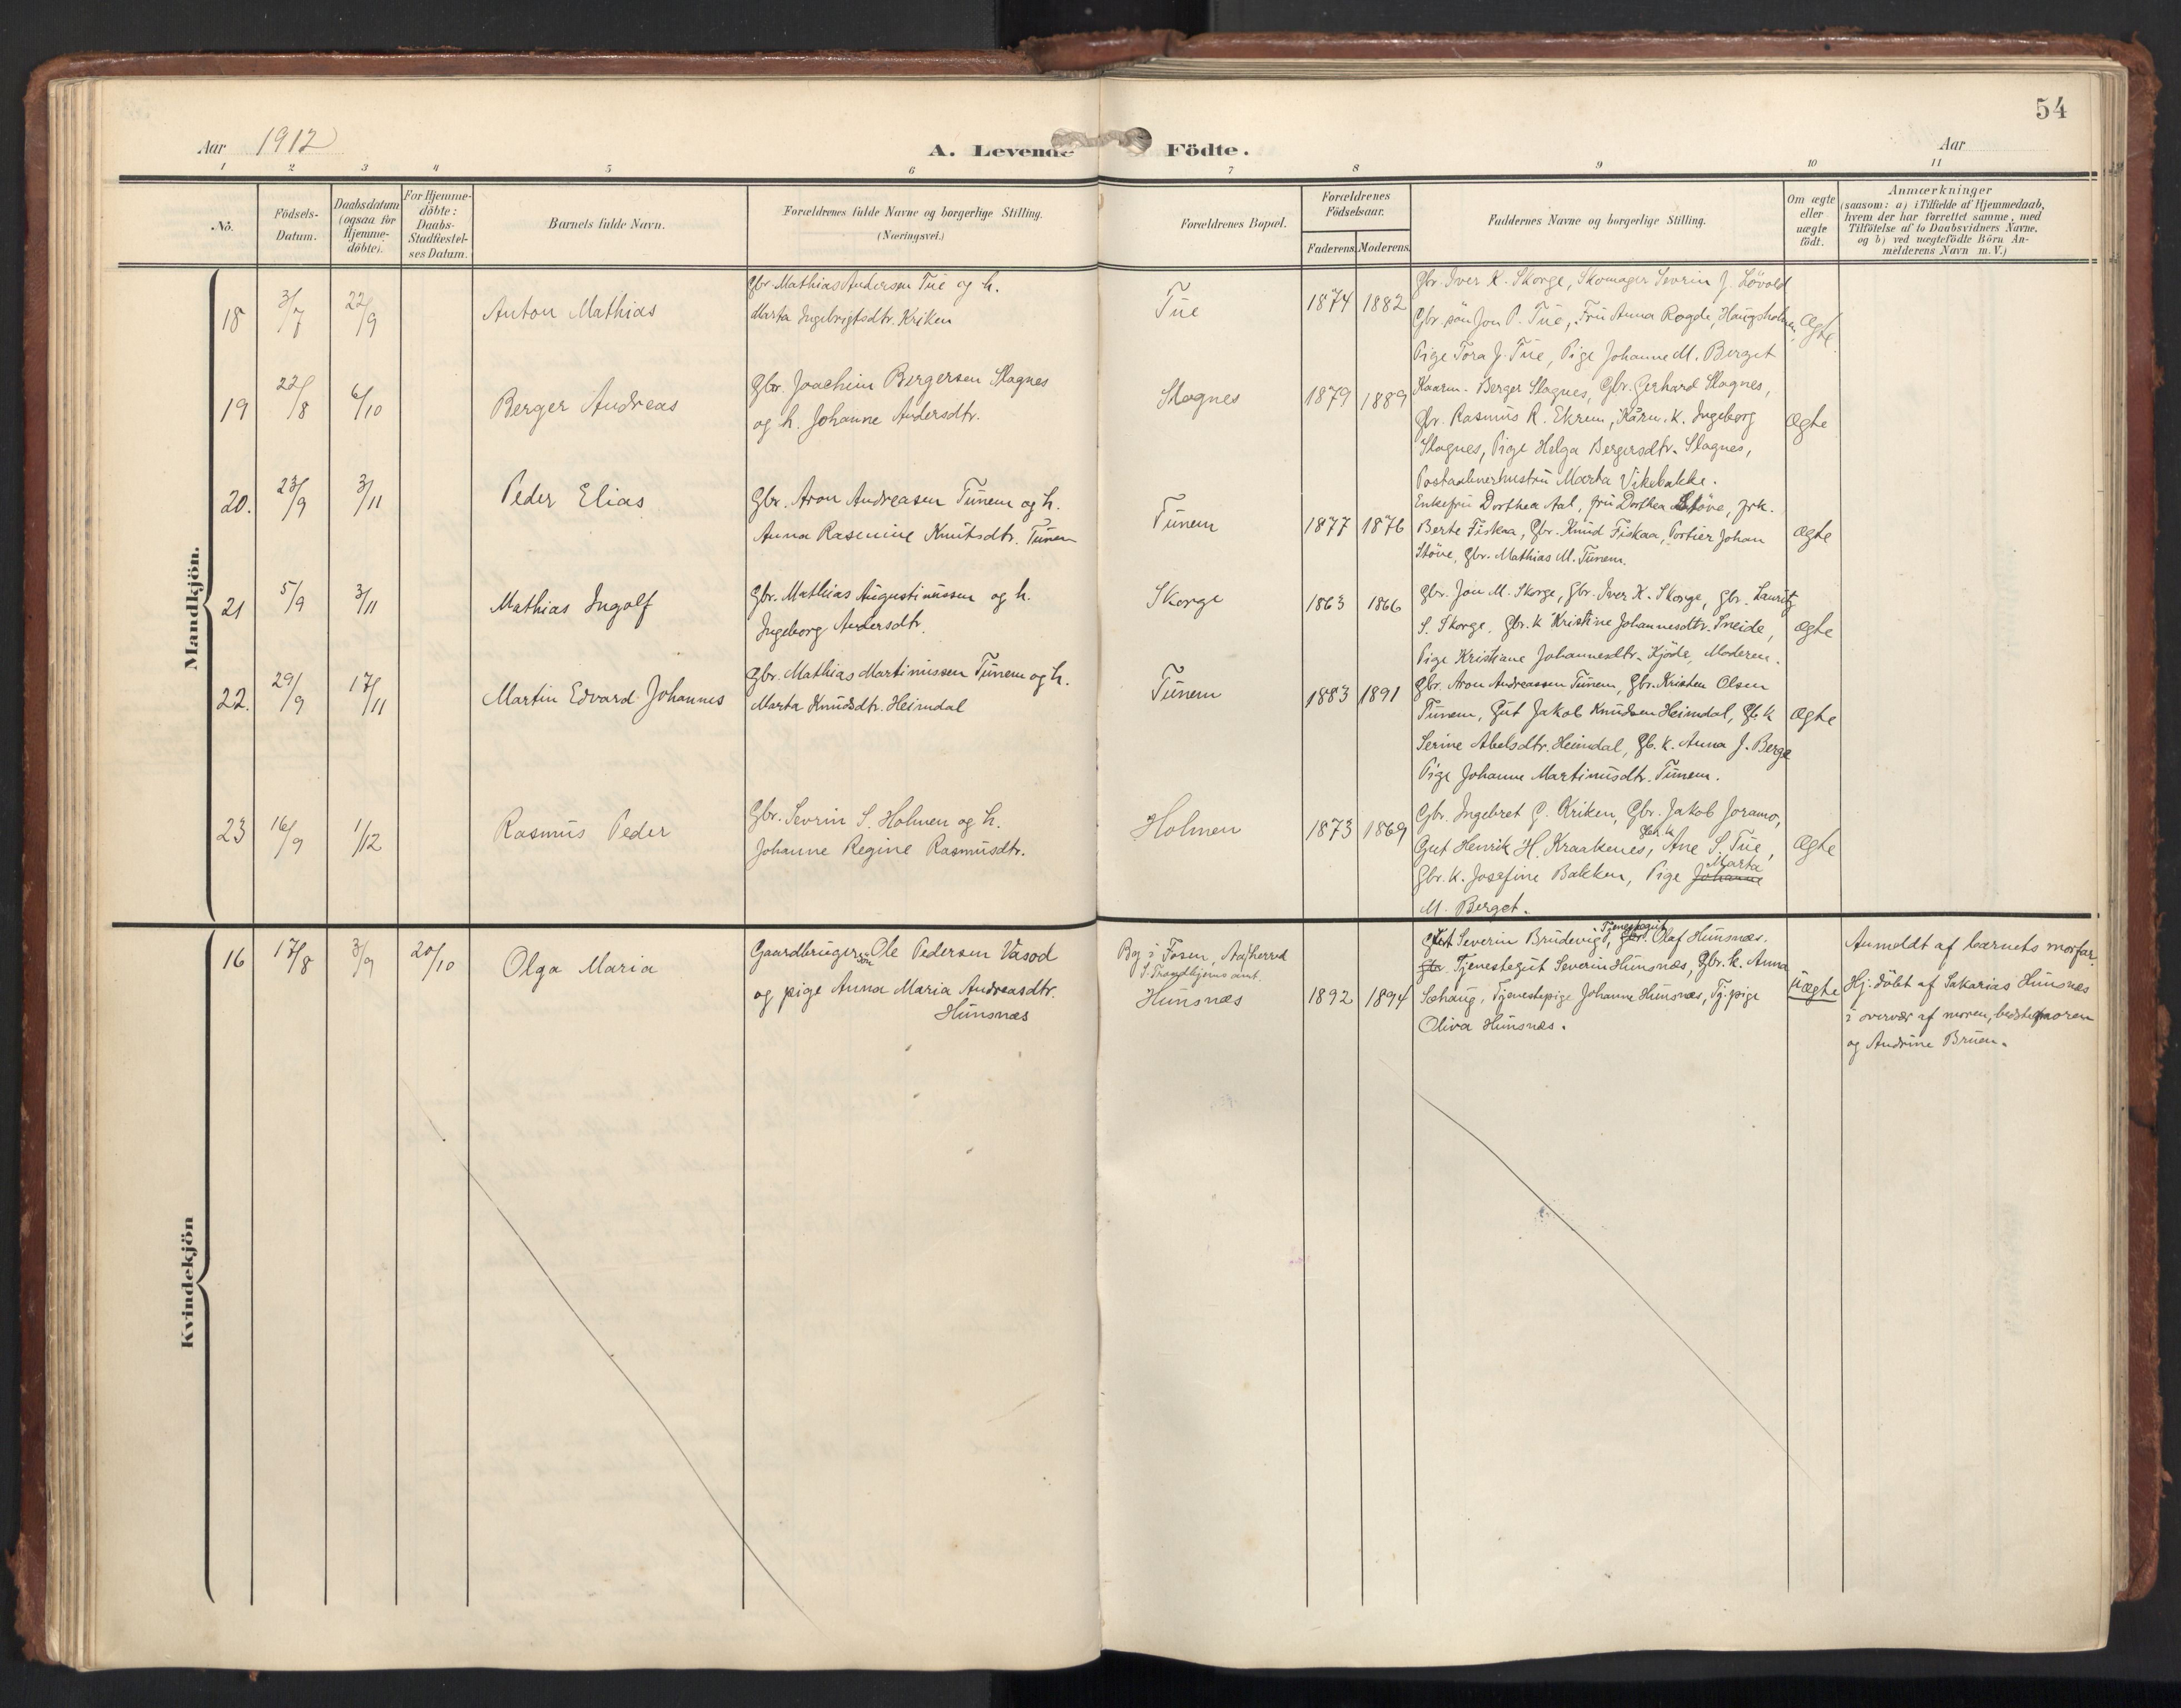 54
Aar 1912
A. Levende Födte.
Aar
1 2 3 4 5 6 7 8 9 10 11
No.
Födsels-Datum.
Daabsdatum (ogsaa for Hjemme-döbte).
For Hjemme-döbte: Daabs-Stadfæstel-ses Datum.
Barnets fulde Navn.
Forældrenes fulde Navne og borgerlige Stilling.
(Næringsvei.)
Forældrenes Bopæl.
Forældrenes Födselsaar.
Faderens. Moderens.
Faddernes Navne og borgerlige Stilling.
Om ægte eller uægte födt.
Anmærkninger
(saasom: a) i Tilfælde af Hjemmedaab,
hvem der har forrettet samme, med
Tilföielse af to Daabsvidners Navne.
og b) ved uægtefödte Börn An-
melderens Navn m. V.)
Mandkjön.
18 3/7 22/9 Anton Mathias
Gbr. Mathias Andersen Tue og h.
Marta Ingebrigtsdtr. Kriken
Tue 1874 1882
Gbr. Iver K. Skorge, Skomager Sevrin J. Lövold
Gbr. sön Jon P. Tue, Fru Anna Rogde, Haugsholmen,
Pige Tora J. Tue, Pige Johanne M. Berget
Ægte.
19 22/8 6/10 Berger Andreas
Gbr. Joachim Bergersen Slagnes
og h. Johanne Andersdtr.
Slagnes 1879 1889
Kaarm. Berger Slagnes, Gbr. Gerhard Slagnes,
Gbr. Rasmus R. Ekrem, Kårm. k. Ingeborg
Slagnes, Pige Helga Bergersdtr. Slagnes,
Postaabnerhustru Marta Vikebakke.
Ægte
20. 23/9 3/11 Peder Elias
Gbr. Aron Andreasen Tunem og h.
Anna Rasmine Knutsdtr. Tunem
Tunem 1877 1876
Enkefru Dorthea Aal, fru Dorthea Stöve, frk.
Berte Fiskaa, Gbr. Knud Fiskaa, Portier Johan
Stöve, Gbr. Mathias M. Tunem.
Ægte
21 5/9 3/11 Mathias Ingolf
Gbr. Mathias Augustinussen og h.
Ingeborg Andersdtr.
Skorge 1863 1866
Gbr. Jon M. Skorge, Gbr. Iver K. Skorge, Gbr. Lauritz
S. Skorge, Gbr. k. Kristine Johannesdtr. Sneide,
Pige Kristiane Johannesdtr. Kjöde, Moderen.
Ægte
22. 29/9 17/11 Martin Edvard Johannes
Gbr. Mathias Martinussen Tunem og h.
Marta Knudsdtr. Heimdal
Tunem 1883 1891
Gbr. Aron Andreassen Tunem, Gbr. Kristen Olsen
Tunem, Gut Jakob Knudsen Heimdal, Gb. k
Serine Abelsdtr. Heimdal, Gb. k. Anna J. Berge
Pige Johanne Martinusdtr. Tunem.
Ægte
23 16/9 1/12 Rasmus Peder
Gbr. Sevrin S. Holmen og h.
Johanne Regine Rasmusdtr.
Holmen 1873 1869
Gbr. Ingebret G. Kriken, Gbr. Jakob Joramo,
Gut Henrik H. Kraakenes, Gbr. k. Ane S. Tue,
Gbr. k. Josefine Bakken, Pige Johanne Marta
M. Berget.
Ægte
Kvindekjön
16 17/8 3/9 20/10 Olga Maria
Gaardbrugersön Ole Pedersen Vasod
og pige Anna Maria Andreasdtr.
Hunsnæs
S. Trondhjems amt.
Hunsnæs 1892 1894
Gut Severin Brudevig, Tjenestegut Olaf Hunsnæs.
Tjenestegut Severin Hunsnæs, Gbr. k. Anna
Sæhaug, Tjenestepige Johanne Hunsnæs, Tj. pige
Oliva Hunsnæs.
Uægte
Anmeldt af barnets morfar.
Hj. döbt af Sakarias Hunsnæs
i overvær af moren, bedstemoren
og Andrine Bruen.